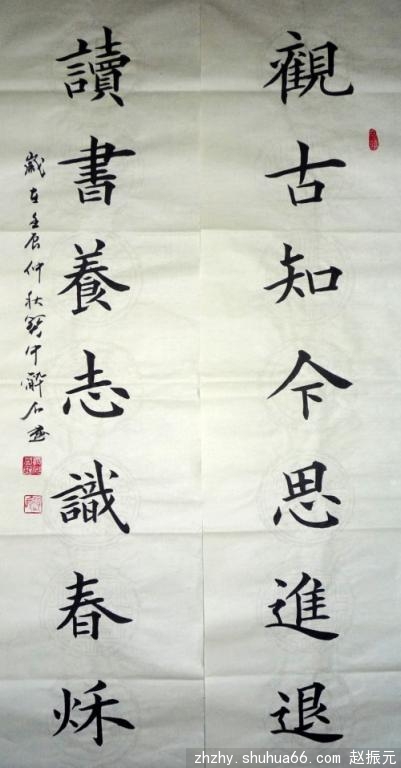 觀古知今思進退
讀書養志識春烁
歲在壬辰仲秋
zhzhy.shuhua66.com 赵振元